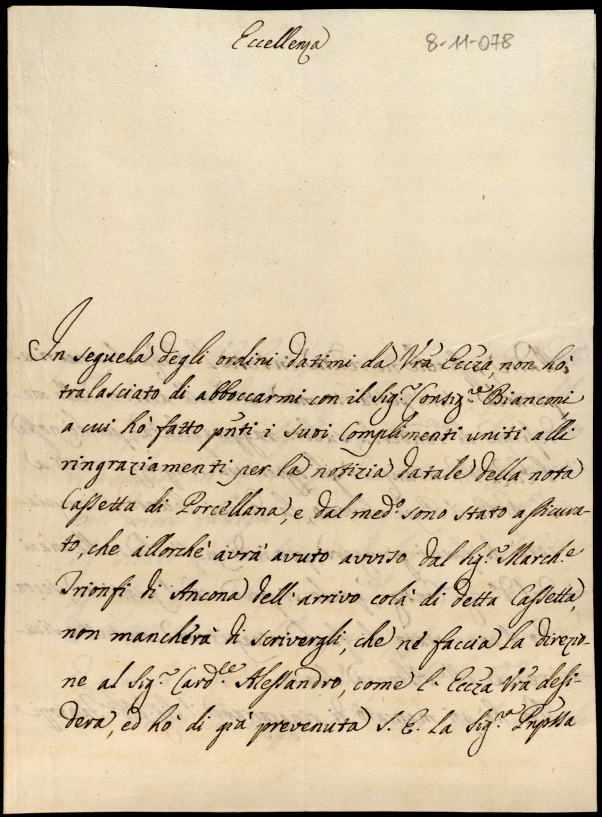 Eccellenza 8-11-078
In seguela degli ordini datimi da Vrā Eccza non hò
tralasciato di abboccarmi con il Sig.r Consig.re Bianconi
a cui hò fatto pñti i suoi Complimenti uniti alli
ringraziamenti per la notizia datale della nota
Cassetta di Porcellana, e dal med.o sono stato assicura-
to, che allorchè avrà avuto avviso dal Sig.r March.e
Trionfi di Ancona dell'arrivo colà di detta Cassetta,
non mancherà di scrivergli, che nè faccia la direzio-
ne al Sig.r Card.le Alessandro, come l'Eccza Vrā desi-
dera, ed hò di già prevenuta S. E. la Sig.ra Pñpssa